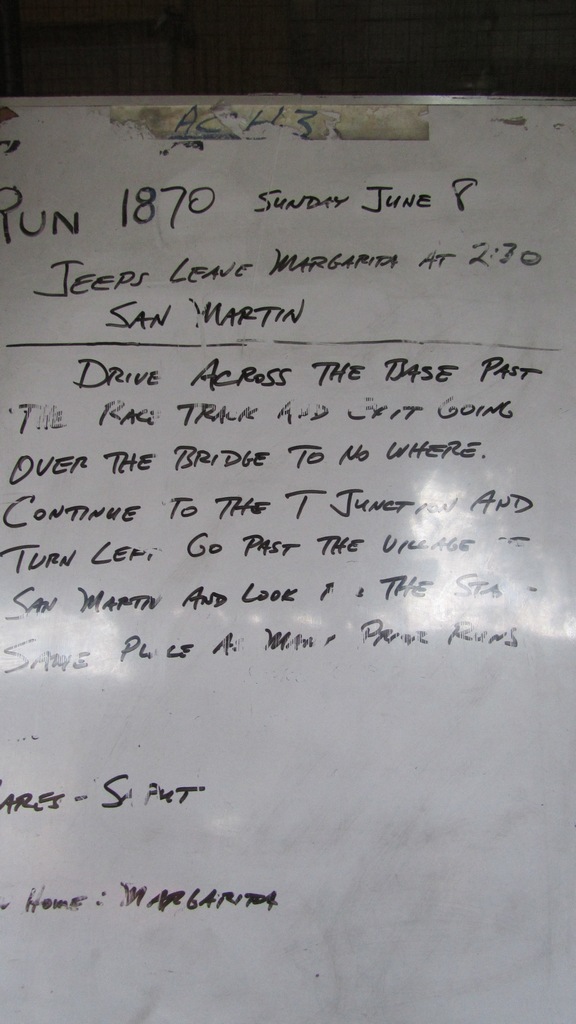 AC H3
RUN 1870 SUNDAY JUNE 8
JEEPS LEAVE MARGARITA AT 2:30
SAN MARTIN
DRIVE ACROSS THE BASE PAST
THE RACE TRACK AND EXIT GOING
OVER THE BRIDGE TO NO WHERE.
CONTINUE TO THE T JUNCTION AND
TURN LEFT GO PAST THE VILLAGE
SAN MARTIN AND LOOK THE
SAME PLACE AS MANY PRIOR RUNS
HOME: MARGARITA